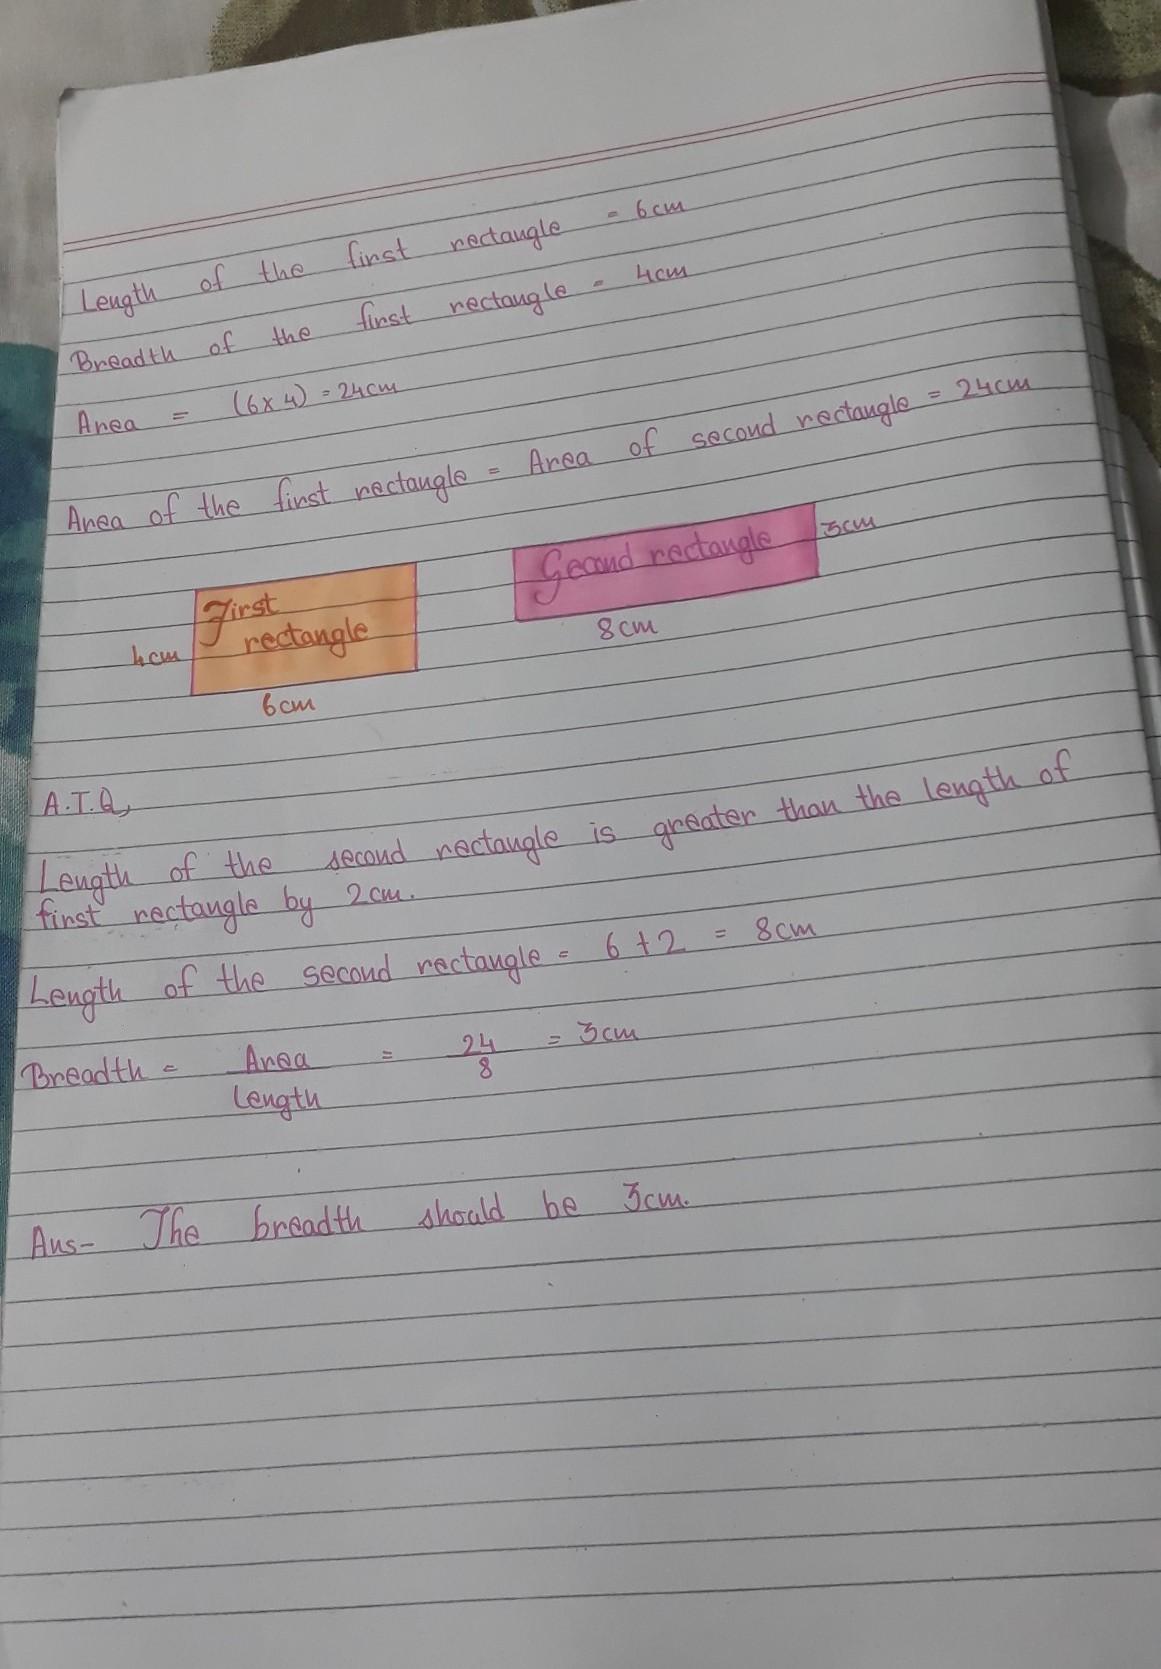 Length of the first rectangle = 6cm
Breadth of the first rectangle = 4cm
Area = (6×4) = 24cm
Area of the first rectangle = Area of second rectangle = 24cm
First
rectangle
4cm
6cm
Second rectangle
3cm
8cm
A.T.Q,
Length of the second rectangle is greater than the length of
first rectangle by 2cm.
Length of the second rectangle = 6 + 2 = 8cm
Breadth = Area = 24 = 3cm
Length 8
Ans- The breadth should be 3cm.